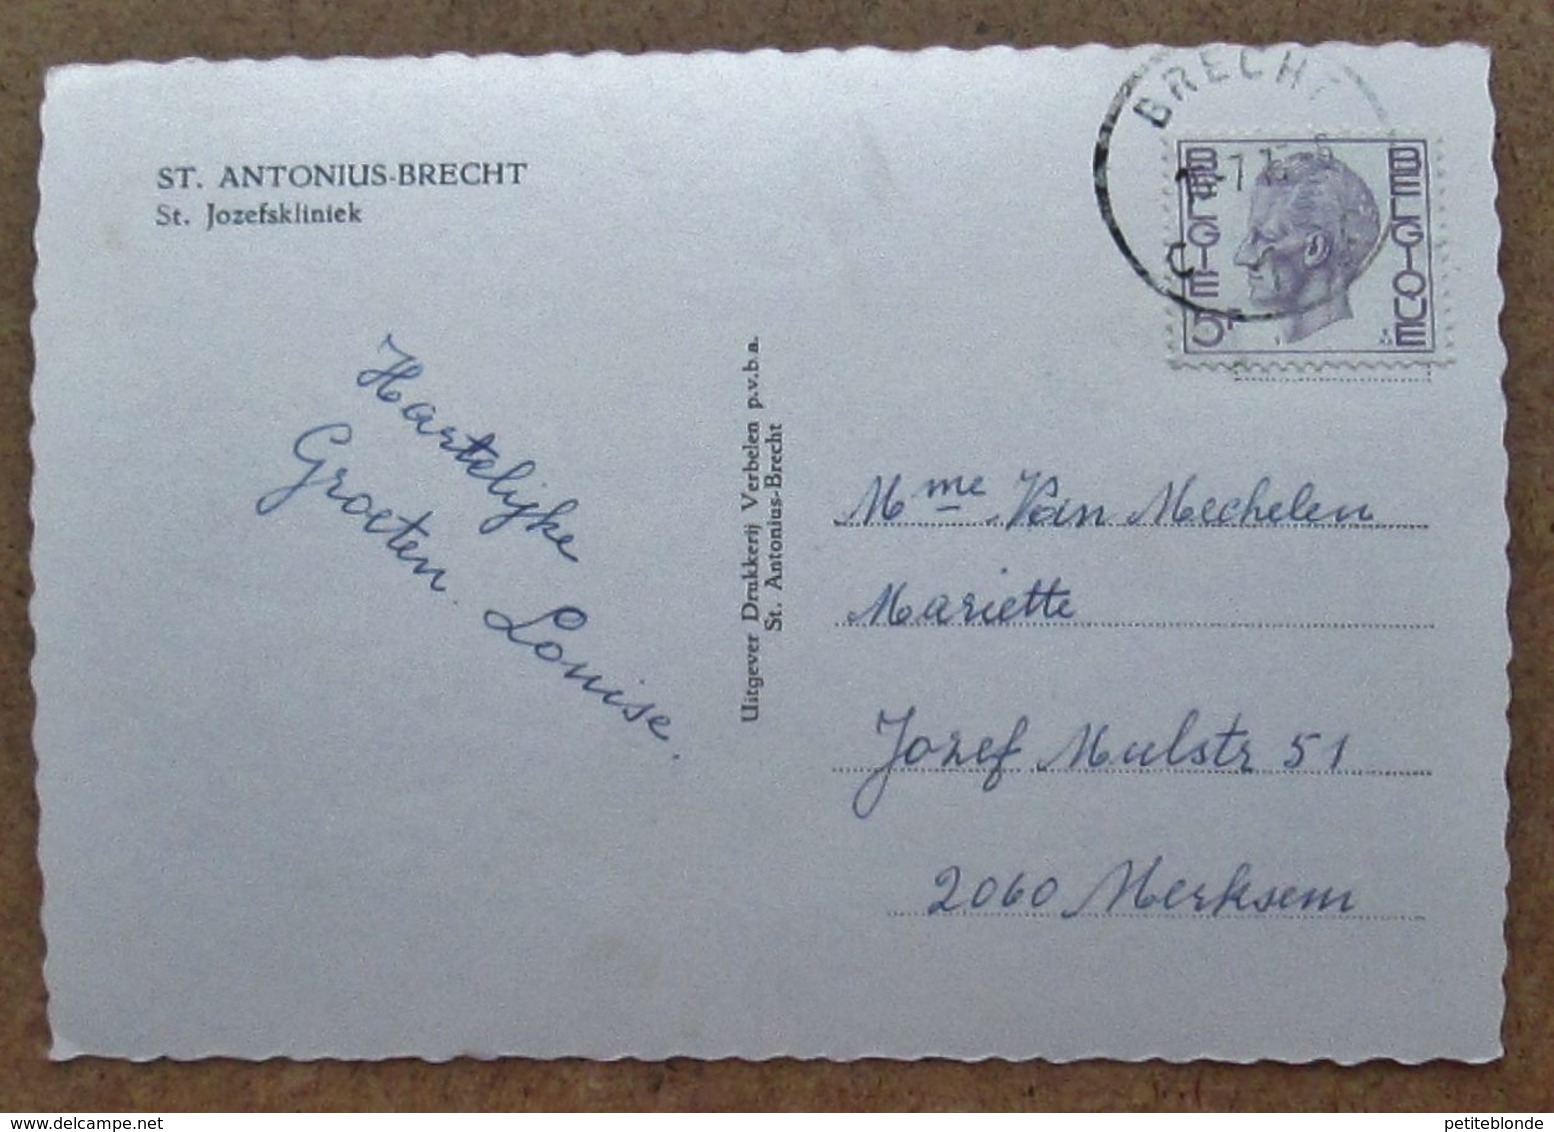 ST. ANTONIUS-BRECHT
St. Jozefskliniek
Hartelijke
Groeten.
Louise.
Uitgever Drukkerij Verbelen p.v.b.a.
St. Antonius-Brecht
BRECHT
BELGIE 5F
BELGIQUE
Mme Van Mechelen
Mariette
Jozef Mulstr 51
2060 Merksem
delcampe.net
petiteblonde